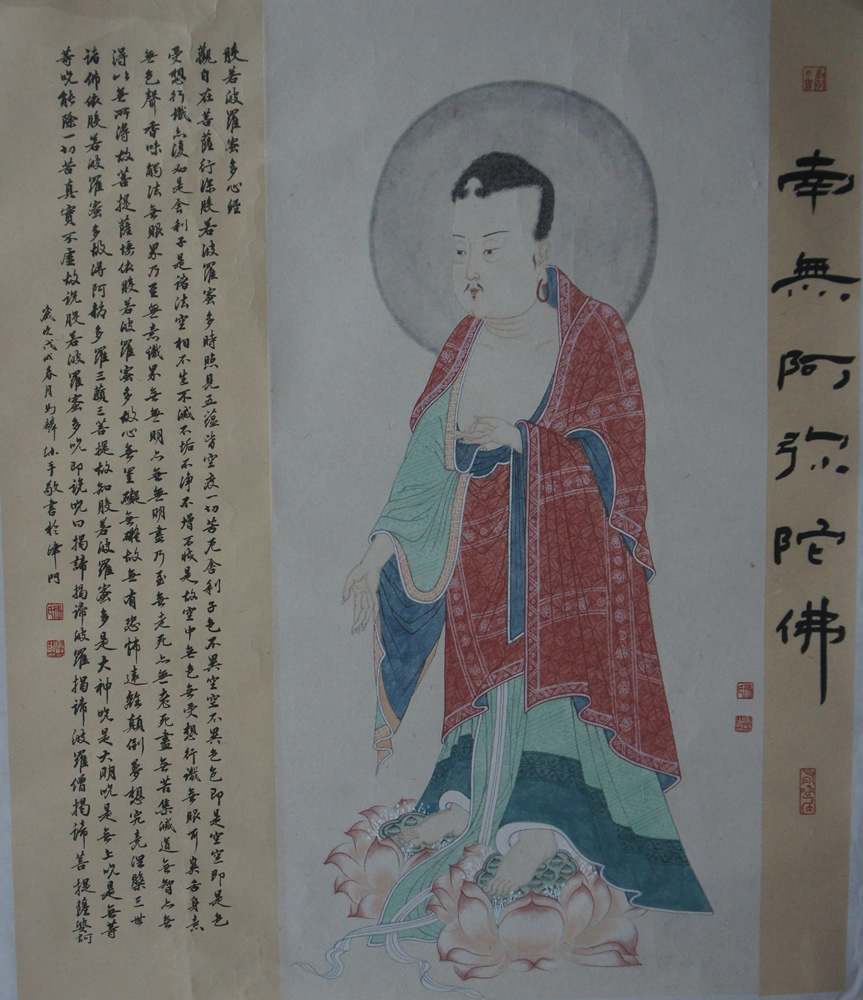 南無阿弥陀佛
般若波羅蜜多心經
觀自在菩薩行深般若波羅蜜多時照見五蘊皆空度一切苦厄舍利子色不異空空不異色色即是空空即是色
受想行識亦復如是舍利子是諸法空相不生不滅不垢不淨不增不減是故空中無色無受想行識無眼耳鼻舌身意
無色聲香味觸法無眼界乃至無意識界無無明亦無無明盡乃至無老死亦無老死盡無苦集滅道無智亦無
得以無所得故菩提薩埵依般若波羅蜜多故心無罣礙無礙故無有恐怖遠離顛倒夢想究竟涅槃三世
諸佛依般若波羅蜜多故得阿耨多羅三藐三菩提故知般若波羅蜜多是大神呪是大明呪是無上呪是無等
等呪能除一切苦真實不虛故說般若波羅蜜多呪即說呪曰揭諦揭諦波羅揭諦波羅僧揭諦菩提薩婆訶
歲次戊戌春月馬麟沐手敬書於津門